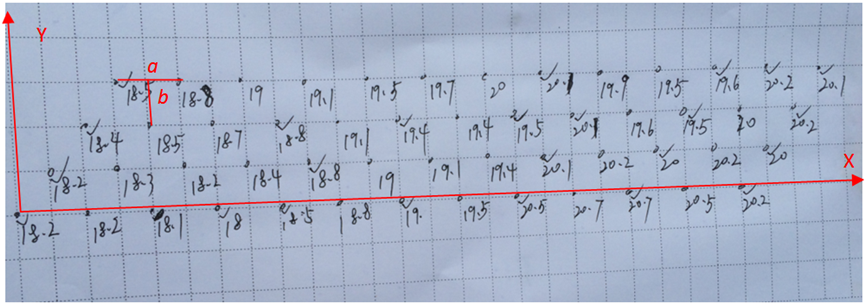 Y
a
18.5 18.8 19 19.1 19.5 19.7 20 20.1 19.9 19.5 19.6 20.2 20.1
b
18.4 18.5 18.7 18.8 19.1 19.4 19.4 19.5 20.1 19.6 19.5 20 20.2
X
18.2 18.3 18.2 18.4 18.8 19 19.1 19.4 20.1 20.2 20 20.2 20
18.2 18.2 18.1 18 18.5 18.8 19. 19.5 20.5 20.7 20.7 20.5 20.2